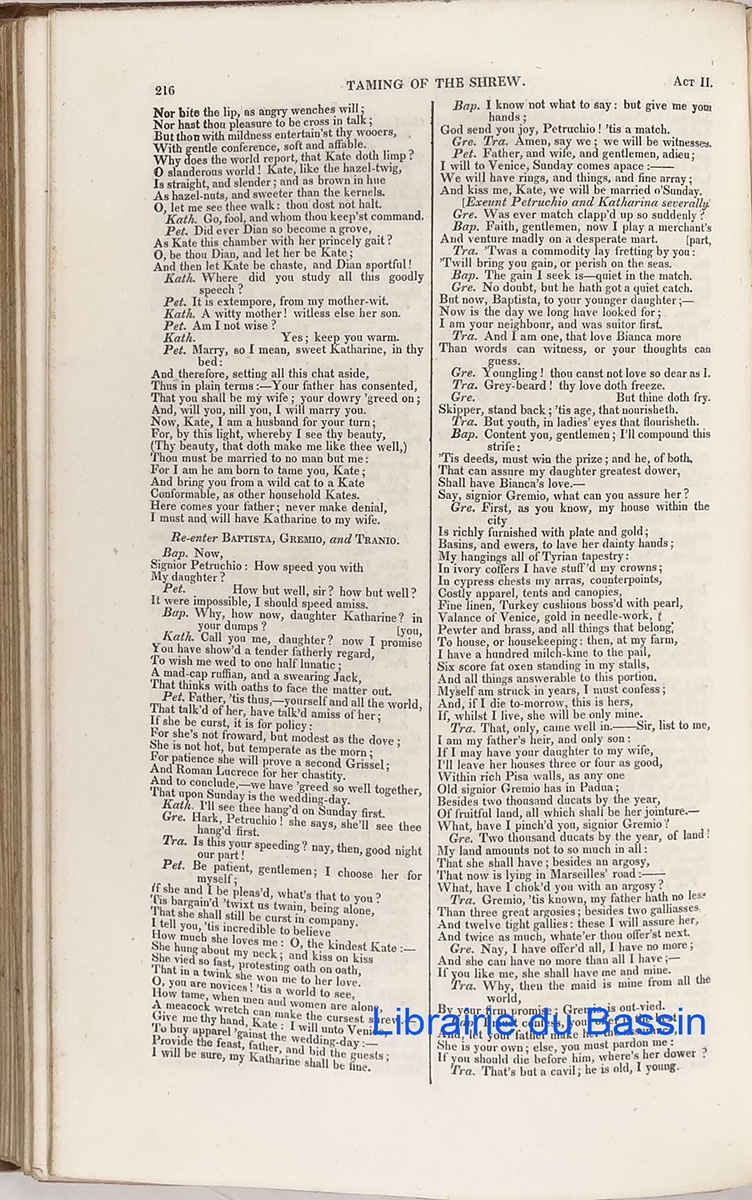 216
TAMING OF THE SHREW.
ACT II.
Nor bite the lip, as angry wenches will;
Nor hast thou pleasure to be cross in talk;
But thou with mildness entertain'st thy wooers,
With gentle conference, soft and affable.
Why does the world report, that Kate doth limp?
O slanderous world! Kate, like the hazel-twig,
Is straight, and slender; and as brown in hue
As hazel-nuts, and sweeter than the kernels.
O, let me see thee walk: thou dost not halt.
Kath. Go, fool, and whom thou keep'st command.
Pet. Did ever Dian so become a grove,
As Kate this chamber with her princely gait?
O, be thou Dian, and let her be Kate;
And then let Kate be chaste, and Dian sportful!
Kath. Where did you study all this goodly
speech?
Pet. It is extempore, from my mother-wit.
Kath. A witty mother! witless else her son.
Pet. Am I not wise?
Kath. Yes; keep you warm.
Pet. Marry, so I mean, sweet Katharine, in thy
bed:
And therefore, setting all this chat aside,
Thus in plain terms:—Your father has consented,
That you shall be my wife; your dowry 'greed on;
And, will you, nill you, I will marry you.
Now, Kate, I am a husband for your turn;
For, by this light, whereby I see thy beauty,
(Thy beauty, that doth make me like thee well,)
Thou must be married to no man but me:
For I am he am born to tame you, Kate;
And bring you from a wild cat to a Kate
Conformable, as other household Kates.
Here comes your father; never make denial,
I must and will have Katharine to my wife.
Re-enter BAPTISTA, GREMIO, and TRANIO.
Bap. Now,
Signior Petruchio: How speed you with
My daughter?
Pet. How but well, sir? how but well?
It were impossible, I should speed amiss.
Bap. Why, how now, daughter Katharine? in
your dumps? [you,
Kath. Call you me, daughter? now I promise
You have show'd a tender fatherly regard,
To wish me wed to one half lunatic;
A mad-cap ruffian, and a swearing Jack,
That thinks with oaths to face the matter out.
Pet. Father, 'tis thus,—yourself and all the world,
That talk'd of her, have talk'd amiss of her;
If she be curst, it is for policy:
For she's not froward, but modest as the dove;
She is not hot, but temperate as the morn;
For patience she will prove a second Grissel;
And Roman Lucrece for her chastity.
And to conclude,—we have 'greed so well together,
That upon Sunday is the wedding-day.
Kath. I'll see thee hang'd on Sunday first.
Gre. Hark, Petruchio! she says, she'll see thee
hang'd first.
Tra. Is this your speeding? nay, then, good night
our part!
Pet. Be patient, gentlemen; I choose her for
myself;
If she and I be pleas'd, what's that to you?
'Tis bargain'd 'twixt us twain, being alone,
That she shall still be curst in company.
I tell you, 'tis incredible to believe
How much she loves me: O, the kindest Kate:—
She hung about my neck; and kiss on kiss
She vied so fast, protesting oath on oath,
That in a twink she won me to her love.
O, you are novices! 'tis a world to see,
How tame, when men and women are alone,
A meacock wretch can make the cursest shrew.
Give me thy hand, Kate: I will unto Venice
To buy apparel 'gainst the wedding-day:—
Provide the feast, father, and bid the guests;
I will be sure, my Katharine shall be fine.
Bap. I know not what to say: but give me your
hands;
God send you joy, Petruchio! 'tis a match.
Gre. Tra. Amen, say we; we will be witnesses.
Pet. Father, and wife, and gentlemen, adieu;
I will to Venice, Sunday comes apace:—
We will have rings, and things, and fine array;
And kiss me, Kate, we will be married o'Sunday.
[Exeunt Petruchio and Katharina severally.
Gre. Was ever match clapp'd up so suddenly?
Bap. Faith, gentlemen, now I play a merchant's
And venture madly on a desperate mart. [part,
Tra. 'Twas a commodity lay fretting by you:
'Twill bring you gain, or perish on the seas.
Bap. The gain I seek is—quiet in the match.
Gre. No doubt, but he hath got a quiet catch.
But now, Baptista, to your younger daughter;—
Now is the day we long have looked for;
I am your neighbour, and was suitor first.
Tra. And I am one, that love Bianca more
Than words can witness, or your thoughts can
guess.
Gre. Youngling! thou canst not love so dear as I.
Tra. Grey-beard! thy love doth freeze.
Gre. But thine doth fry.
Skipper, stand back; 'tis age, that nourisheth.
Tra. But youth, in ladies' eyes that flourisheth.
Bap. Content you, gentlemen; I'll compound this
strife:
'Tis deeds, must win the prize; and he, of both,
That can assure my daughter greatest dower,
Shall have Bianca's love.—
Say, signior Gremio, what can you assure her?
Gre. First, as you know, my house within the
city
Is richly furnished with plate and gold;
Basins, and ewers, to lave her dainty hands;
My hangings all of Tyrian tapestry:
In ivory coffers I have stuff'd my crowns;
In cypress chests my arras, counterpoints,
Costly apparel, tents and canopies,
Fine linen, Turkey cushions boss'd with pearl,
Valance of Venice, gold in needle-work,
Pewter and brass, and all things that belong
To house, or housekeeping: then, at my farm,
I have a hundred milch-kine to the pail,
Six score fat oxen standing in my stalls,
And all things answerable to this portion.
Myself am struck in years, I must confess;
And, if I die to-morrow, this is hers,
If, whilst I live, she will be only mine.
Tra. That, only, came well in.—Sir, list to me,
I am my father's heir, and only son:
If I may have your daughter to my wife,
I'll leave her houses three or four as good,
Within rich Pisa walls, as any one
Old signior Gremio has in Padua;
Besides two thousand ducats by the year,
Of fruitful land, all which shall be her jointure.—
What, have I pinch'd you, signior Gremio?
Gre. Two thousand ducats by the year, of land!
My land amounts not to so much in all:
That she shall have; besides an argosy,
That now is lying in Marseilles' road:—
What, have I chok'd you with an argosy?
Tra. Gremio, 'tis known, my father hath no less
Than three great argosies; besides two galliasses,
And twelve tight gallies: these I will assure her,
And twice as much, whate'er thou offer'st next.
Gre. Nay, I have offer'd all, I have no more;
And she can have no more than all I have;—
If you like me, she shall have me and mine.
Tra. Why, then the maid is mine from all the
world,
By your firm promise; Gremio is out-vied.
And, let your father make her
She is your own; else, you must pardon me:
If you should die before him, where's her dower?
Tra. That's but a cavil; he is old, I young.
Librairie du Bassin